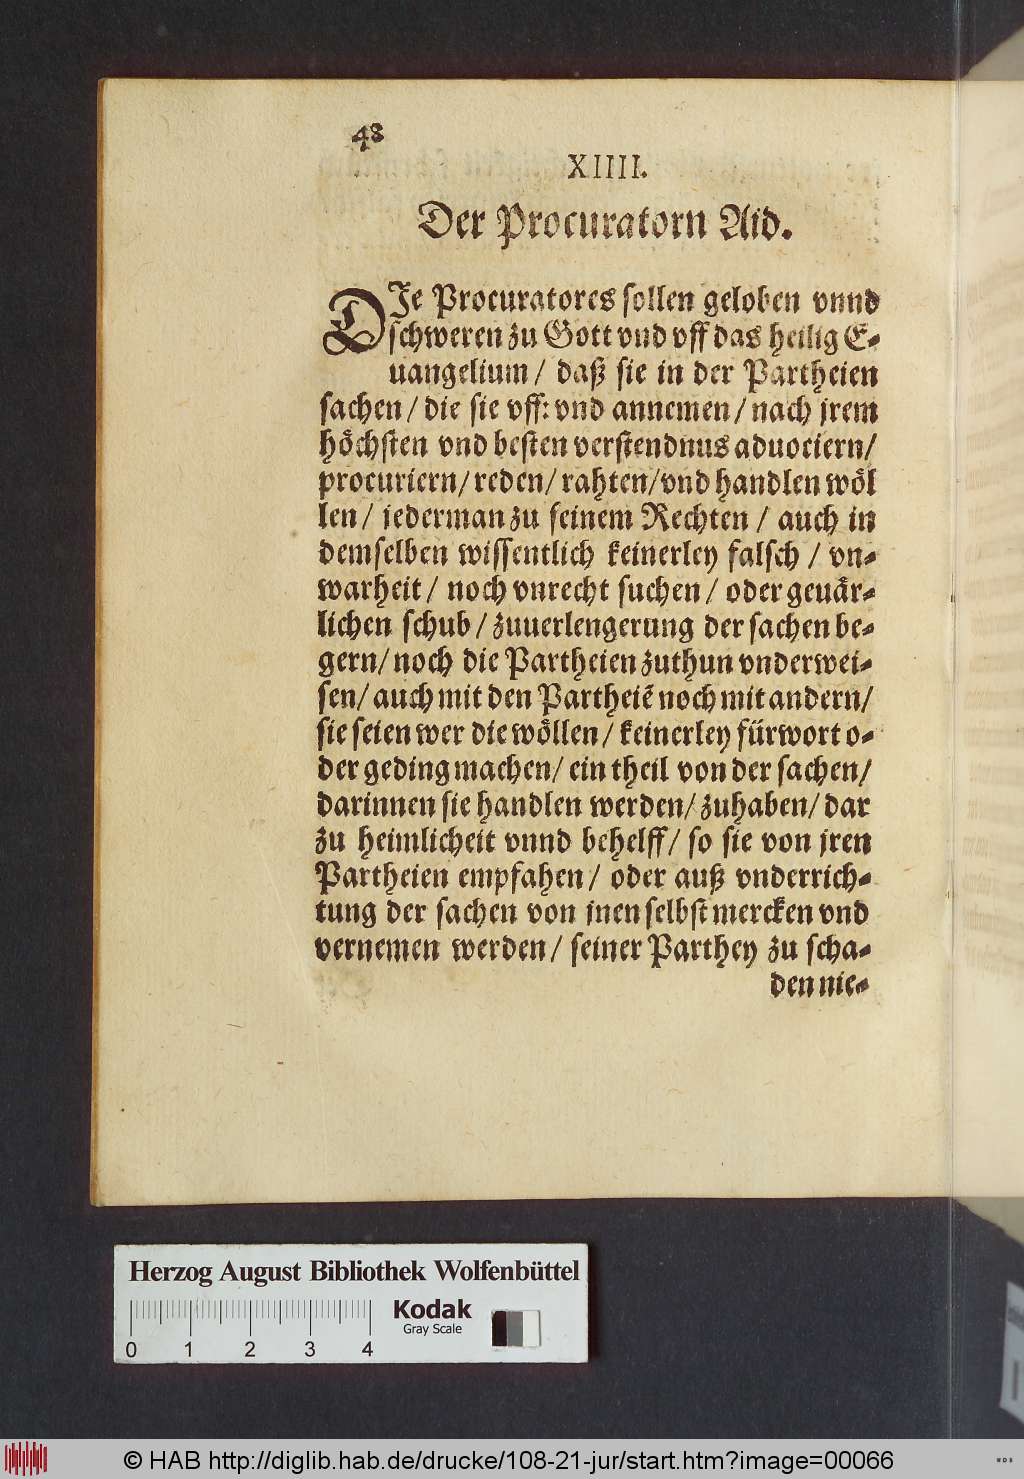 48
XIIII.
Der Procuratorn Aid.
DJe Procuratores sollen geloben vnnd
schweren zu Gott vnd vff das heilig E-
uangelium / daß sie in der Partheien
sachen / die sie vff: vnd annemen / nach jrem
höchsten vnd besten verstendnus aduociern/
procuriern/ reden/ rahten/vnd handlen wöl
len / jederman zu seinem Rechten / auch in
demselben wissentlich keinerley falsch / vn-
warheit / noch vnrecht suchen / oder geuär-
lichen schub / zuuerlengerung der sachen be-
gern/ noch die Partheien zuthun vnderwei-
sen/ auch mit den Partheiẽ noch mit andern/
sie seien wer die wöllen / keinerley fürwort o-
der geding machen/ ein theil von der sachen/
darinnen sie handlen werden/ zuhaben/ dar
zu heimlicheit vnnd behelff/ so sie von jren
Partheien empfahen / oder auß vnderrich-
tung der sachen von jnen selbst mercken vnd
vernemen werden / seiner Parthey zu scha-
den nie-
Herzog August Bibliothek Wolfenbüttel
Kodak
Gray Scale
0 1 2 3 4
© HAB http://diglib.hab.de/drucke/108-21-jur/start.htm?image=00066